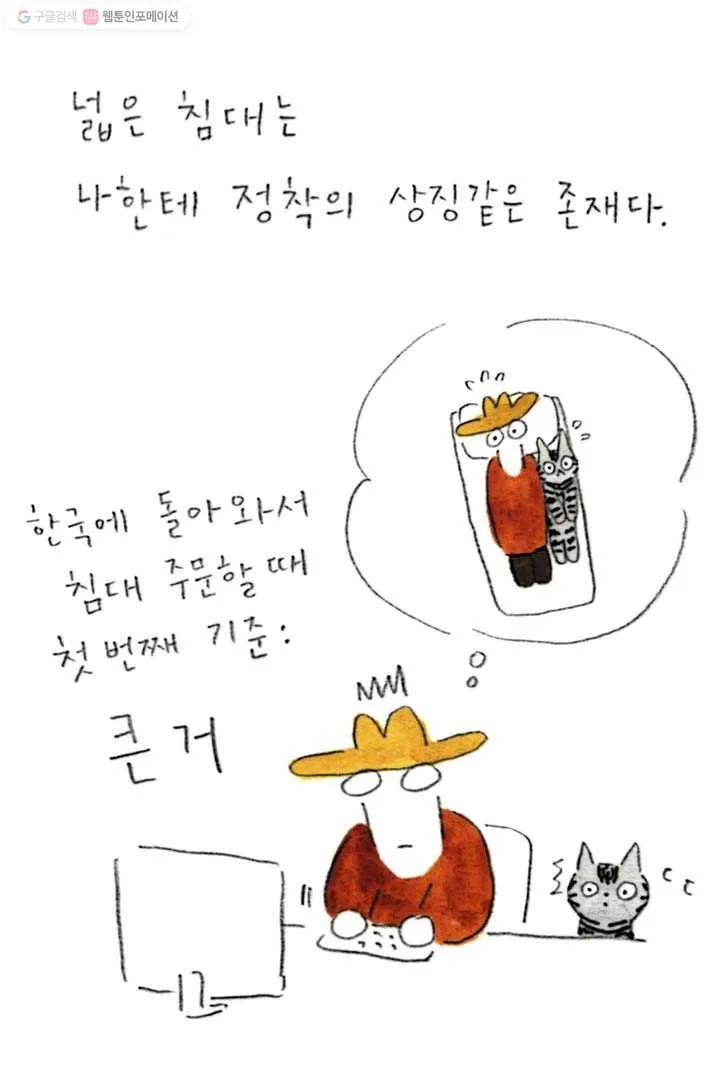 구글검색 웹툰인포메이션
넓은 침대는
나한테 정착의 상징같은 존재다.
한국에 돌아와서
침대 주문할 때
첫 번째 기준:
큰 거